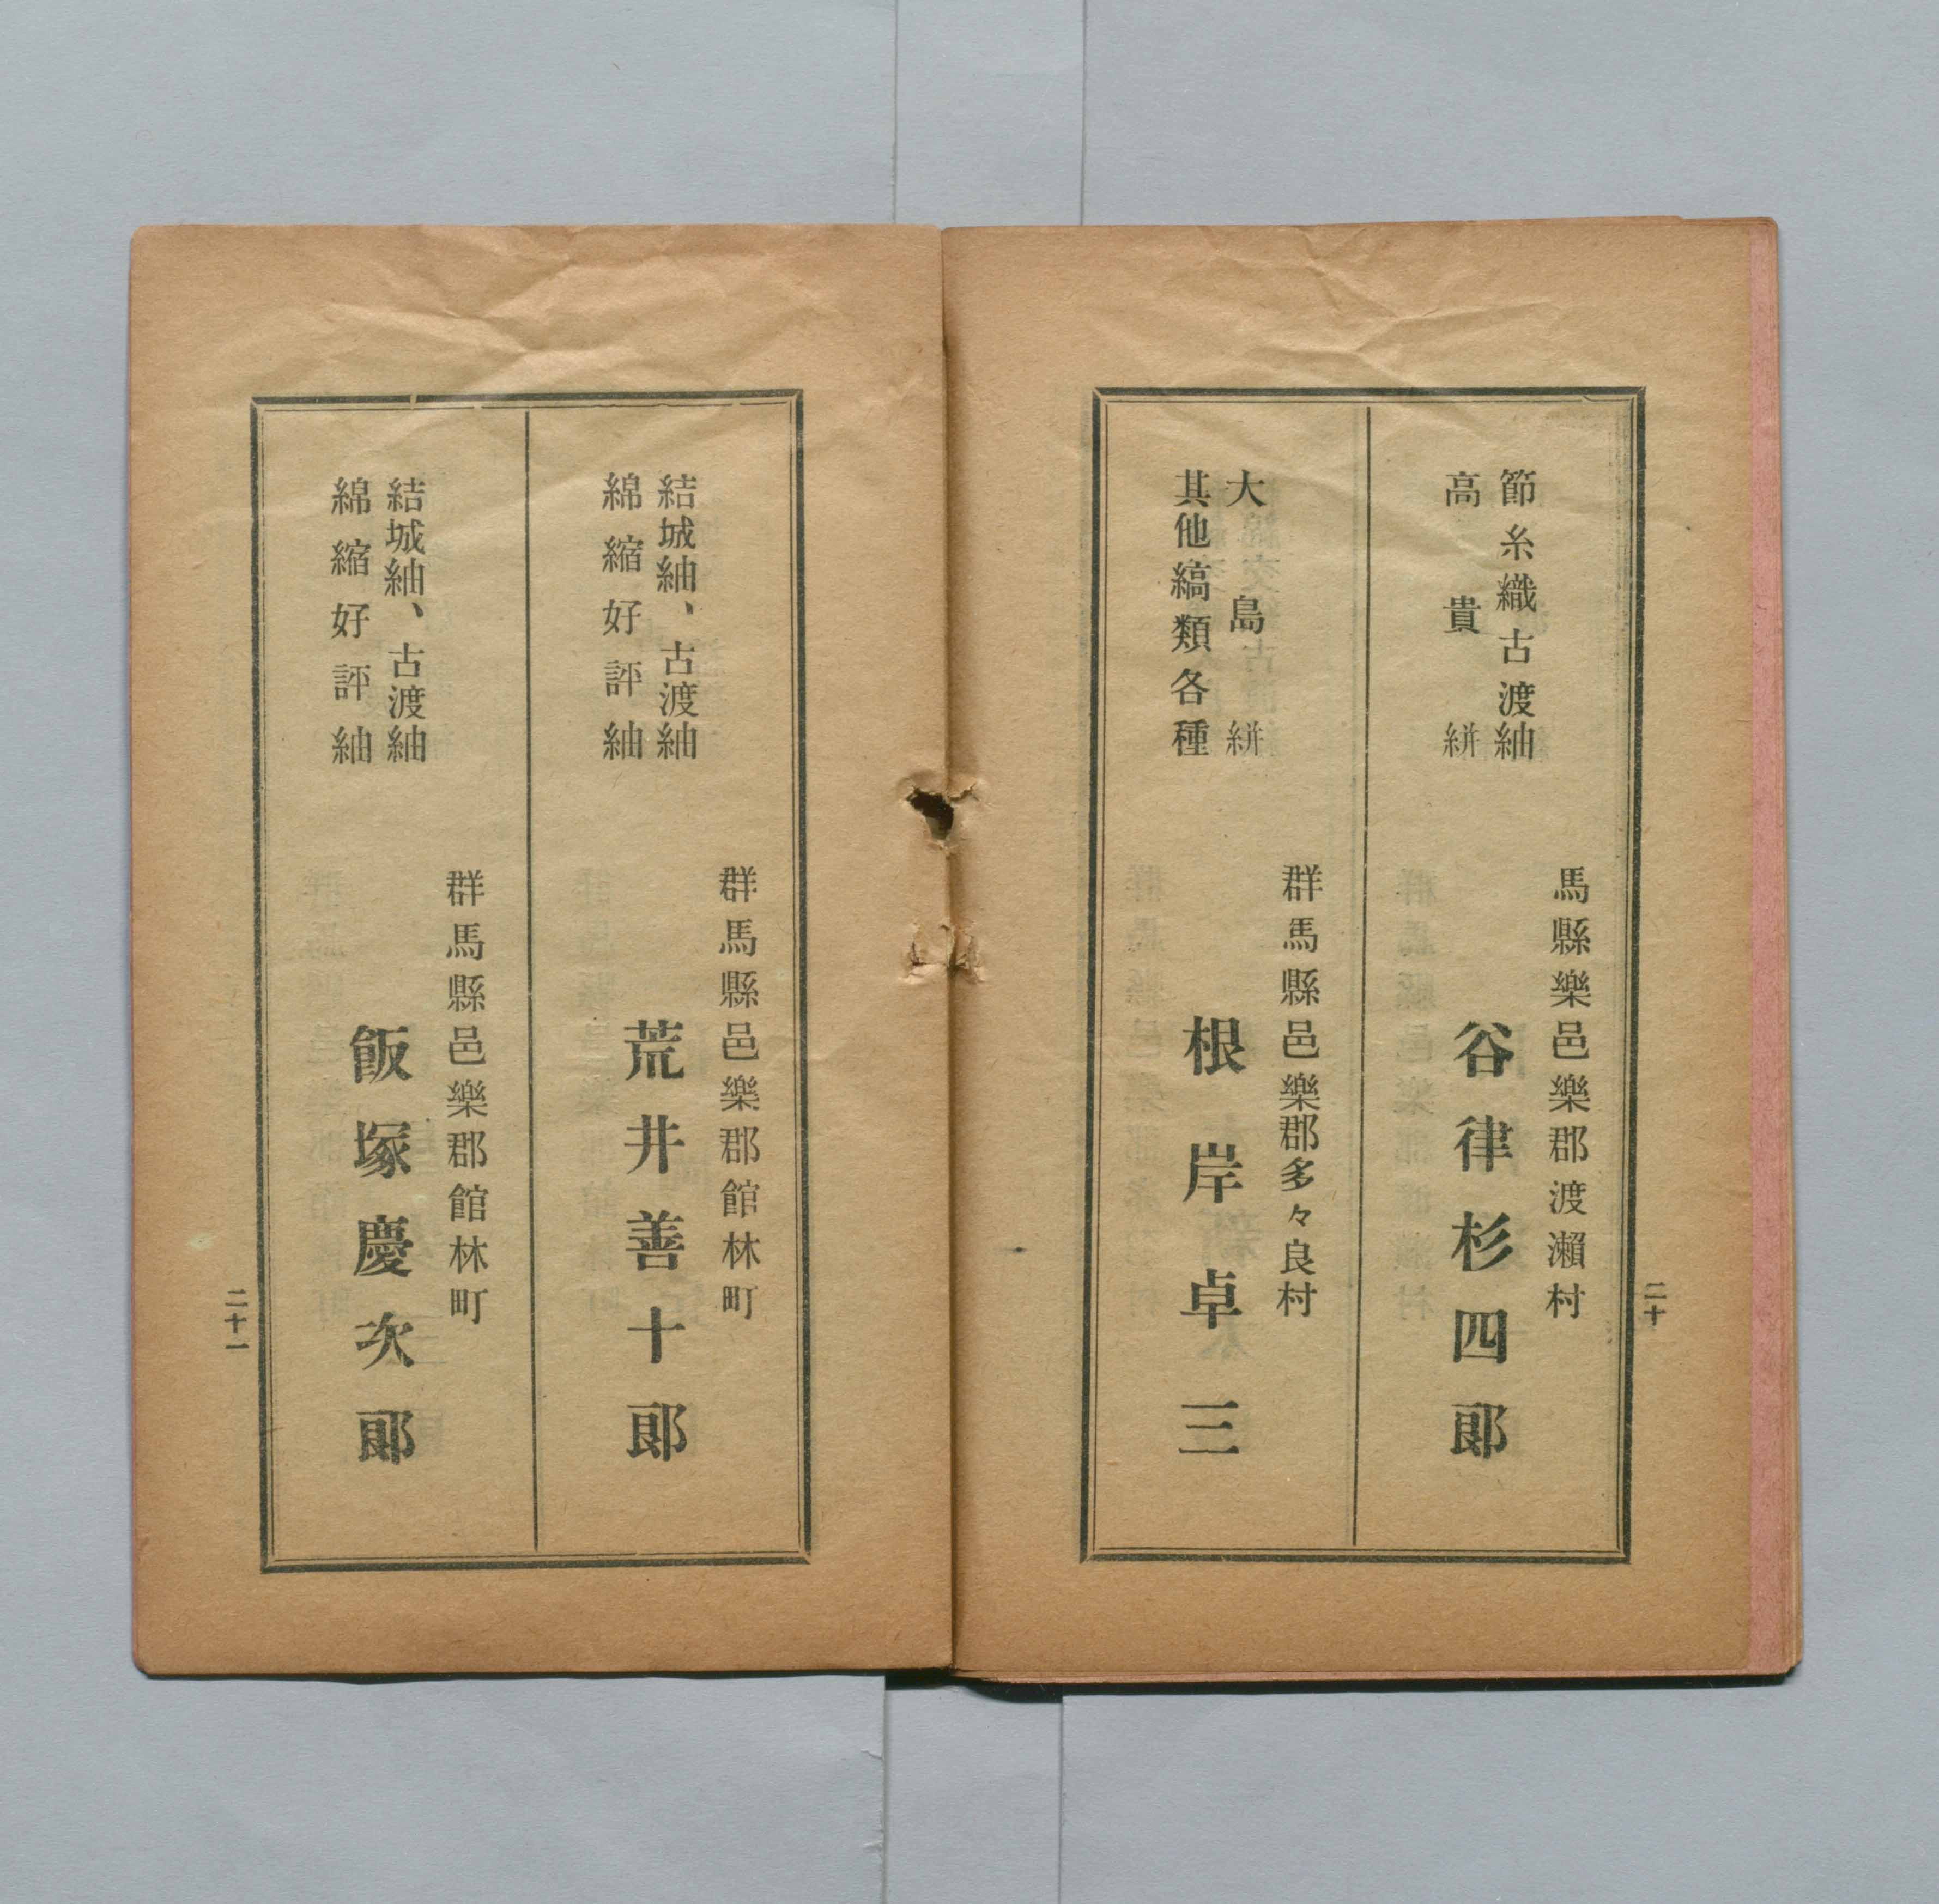 節糸織古渡紬
高貴絣
馬縣樂邑樂郡渡瀨村
谷律杉四郎
大島絣
其他縞類各種
群馬縣邑樂郡多々良村
根岸卓三
二十
結城紬、古渡紬
綿縮好評紬
群馬縣邑樂郡館林町
荒井善十郎
結城紬、古渡紬
綿縮好評紬
群馬縣邑樂郡館林町
飯塚慶次郎
二十一